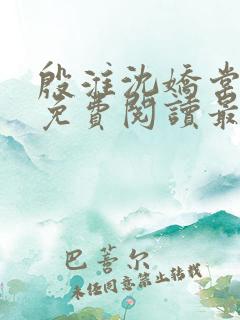 殷淮沈嬌棠
免費閱讀最
巴蓍尔
未经同意禁止转载